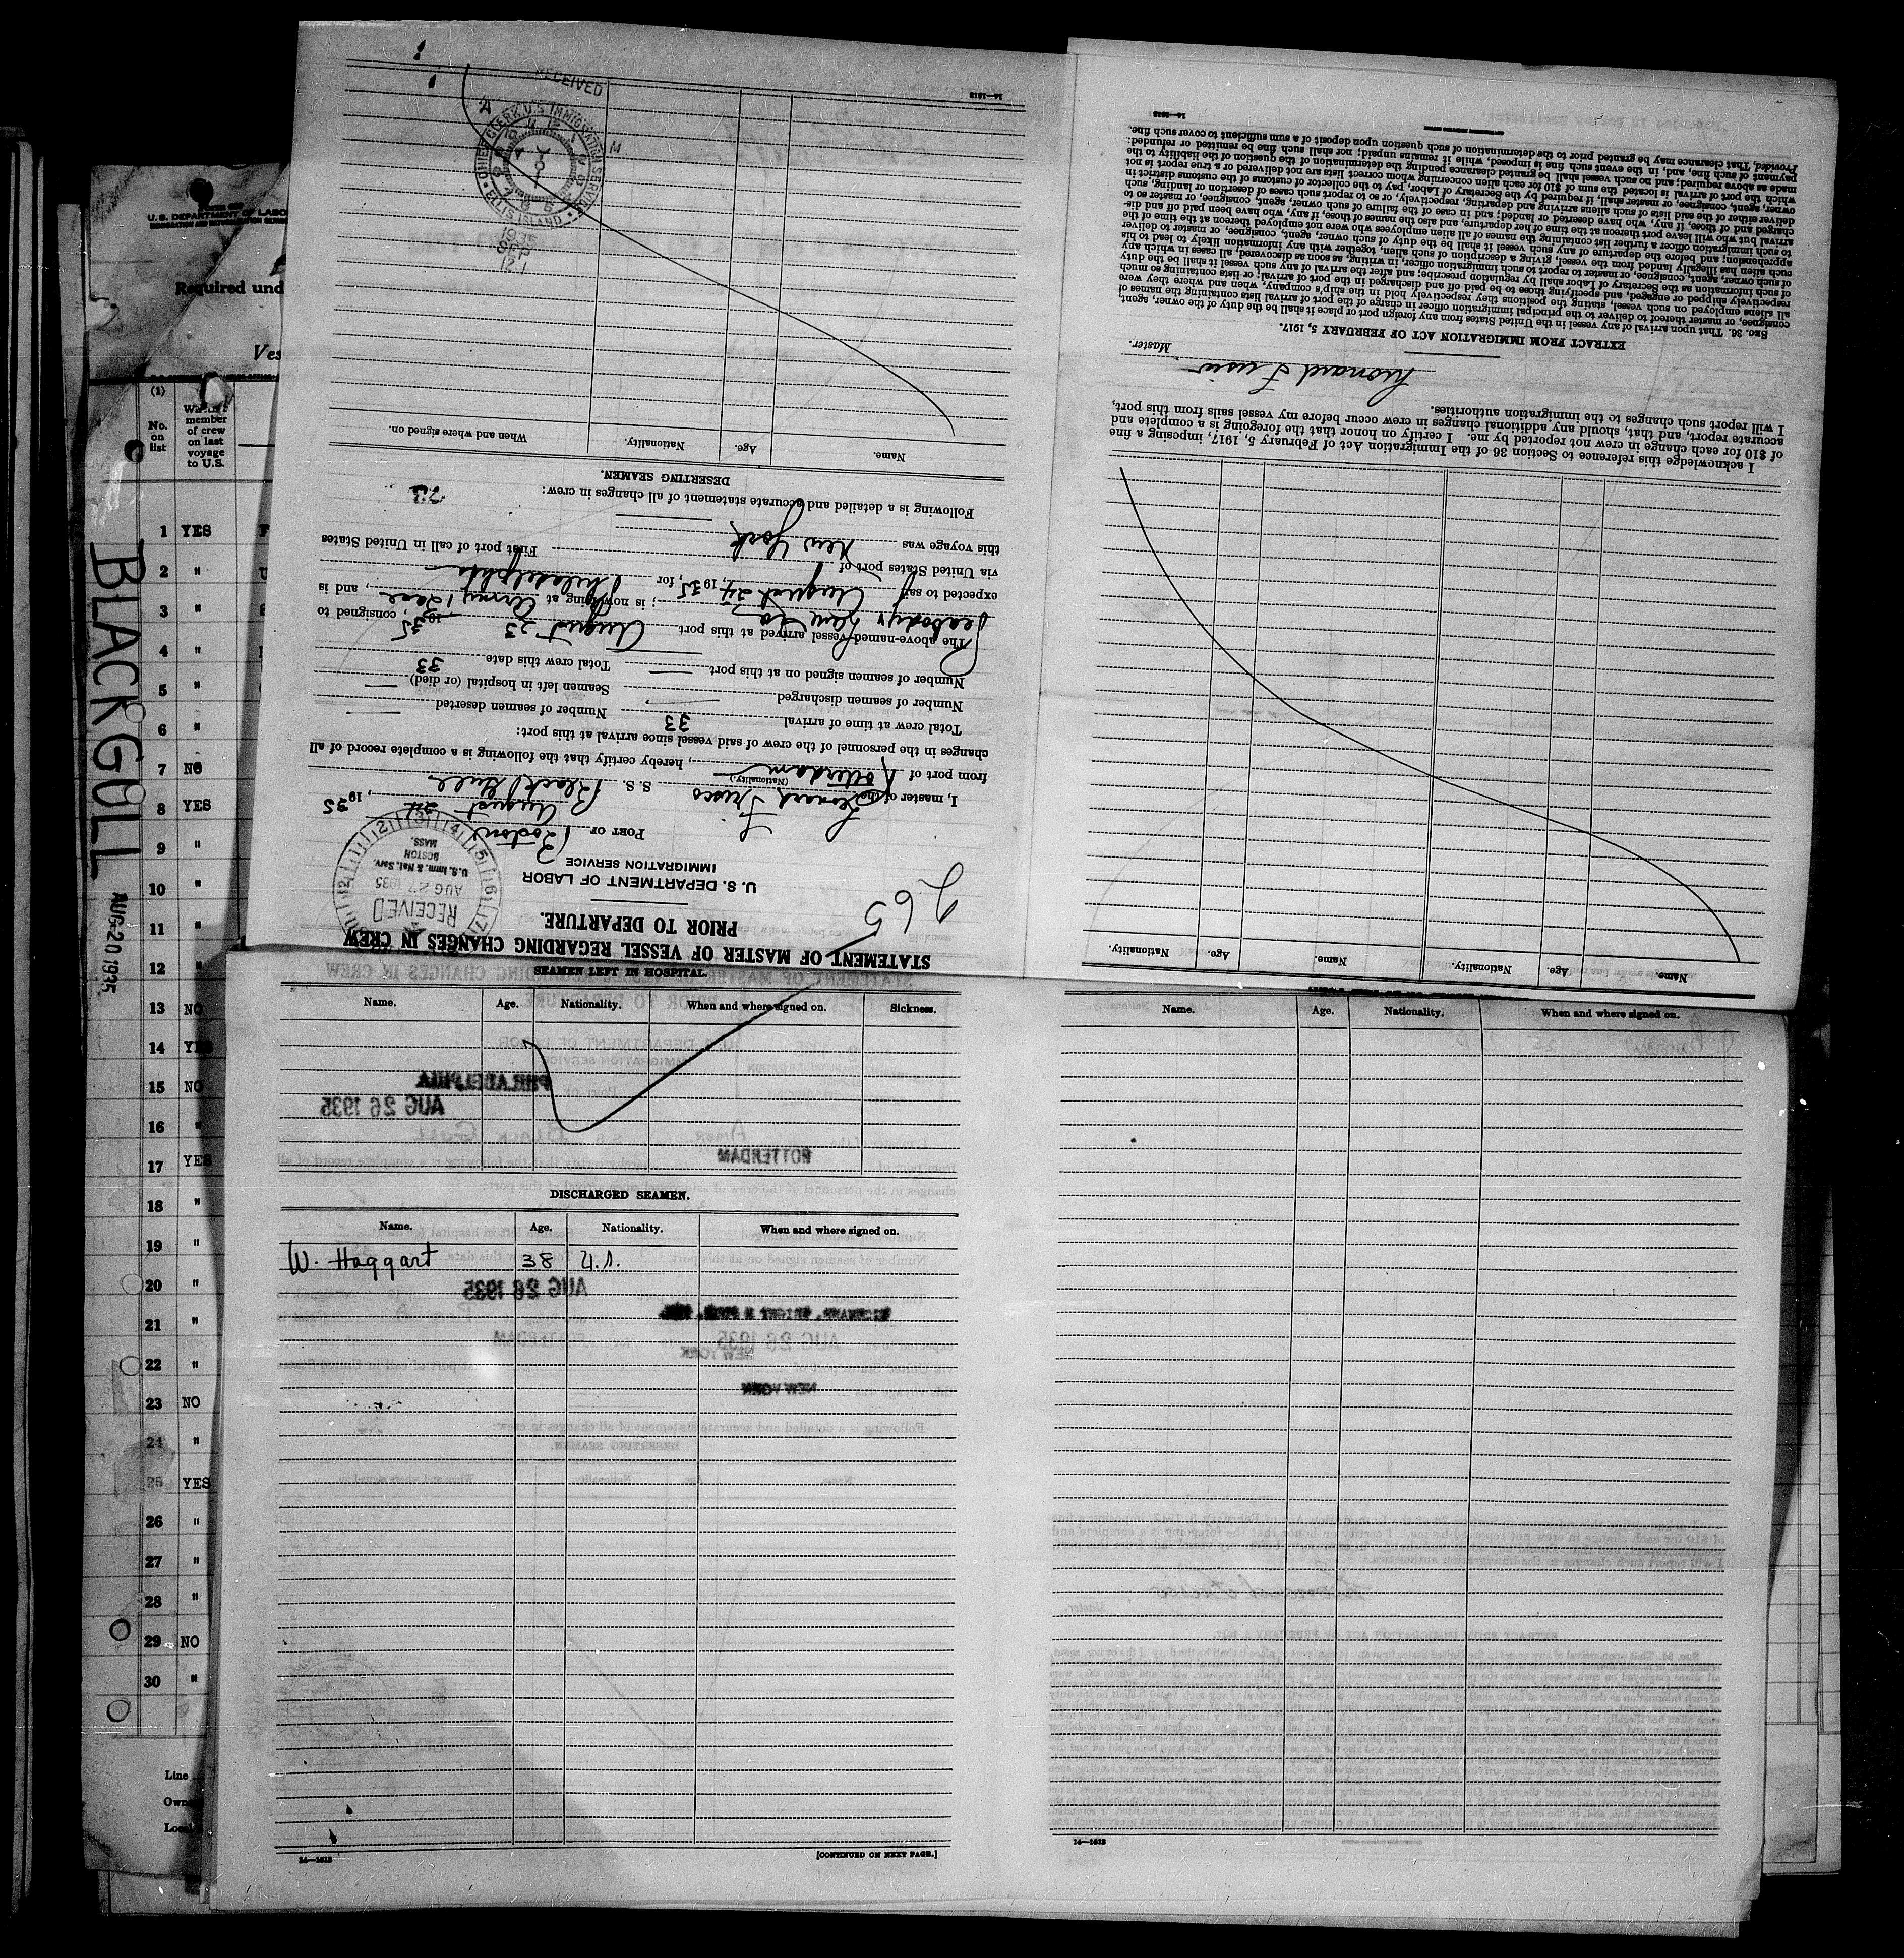 U.S. DEPARTMENT OF LABOR
Required und
Ves
(1)
No. on list
member of crew on last voyage to U.S.
1 YES
2 "
3 "
4 "
5 "
6 "
7 NO
8 YES
9 "
10 "
11 "
12 "
13 NO
14 YES
15 NO
16 "
17 YES
18 "
19 "
20 "
21 "
22 "
23 NO
24 "
25 YES
26 "
27 "
28 "
29 NO
30 "
Line
Own
Local
BLACKGULL
AUG 20 1935
STATEMENT OF MASTER OF VESSEL REGARDING CHANGES IN CREW
PRIOR TO DEPARTURE.
U. S. DEPARTMENT OF LABOR
IMMIGRATION SERVICE
265
RECEIVED
AUG 27 1935
U.S. Imm. & Nat. Serv.
BOSTON
MASS.
PORT OF Boston
August 24, 1935
I, master of the S. S. Black Gull
(Nationality)
from port of Rotterdam, hereby certify that the following is a complete record of all
changes in the personnel of the crew of said vessel since arrival at this port:
Total crew at time of arrival 33 Number of seamen deserted —
Number of seamen discharged — Seamen left in hospital (or died) —
Number of seamen signed on at this port — Total crew this date 33
The above-named vessel arrived at this port August 23 1935, consigned to
; is now lying at Army Base, and is
expected to sail August 24, 1935, for Philadelphia
via United States port of
this voyage was New York First port of call in United States
Following is a detailed and accurate statement of all changes in crew:
DESERTING SEAMEN.
Name. Age. Nationality. When and where signed on.
RECEIVED
CHIEF CLERK, U.S. IMMIGRATION SERVICE
ELLIS ISLAND
1935
SEP
14—1613
Name. Age. Nationality. Name. Age. Nationality.
I acknowledge this reference to Section 36 of the Immigration Act of February 5, 1917, imposing a fine
of $10 for each change in crew not reported by me. I certify on honor that the foregoing is a complete and
accurate report, and that, should any additional changes in crew occur before my vessel sails from this port,
I will report such changes to the immigration authorities.
Master.
EXTRACT FROM IMMIGRATION ACT OF FEBRUARY 5, 1917.
SEC. 36. That upon arrival of any vessel in the United States from any foreign port or place it shall be the duty of the owner, agent,
consignee, or master thereof to deliver to the principal immigration officer in charge of the port of arrival lists containing the names of
all aliens employed on such vessel, stating the positions they respectively hold in the ship's company, when and where they were
respectively shipped or engaged, and specifying those to be paid off and discharged in the port of arrival; or lists containing so much
of such information as the Secretary of Labor shall by regulation prescribe; and after the arrival of any such vessel it shall be the duty
of such owner, agent, consignee, or master to report to such immigration officer, in writing, as soon as discovered, all cases in which any
such alien has illegally landed from the vessel, giving a description of such alien, together with any information likely to lead to his
apprehension; and before the departure of any such vessel it shall be the duty of such owner, agent, consignee, or master to deliver
to such immigration officer a further list containing the names of all alien employees who were not employed thereon at the time of the
arrival but who will leave port thereon at the time of her departure, and also the names of those, if any, who have been paid off and dis-
charged and of those, if any, who have deserted or landed; and in case of the failure of such owner, agent, consignee, or master so to
deliver either of the said lists of such aliens arriving and departing, respectively, or so to report such cases of desertion or landing, such
owner, agent, consignee, or master, shall, if required by the Secretary of Labor, pay to the collector of customs of the customs district in
which the port of arrival is located the sum of $10 for each alien concerning whom correct lists are not delivered or a true report is not
made as above required; and no such vessel shall be granted clearance pending the determination of the question of the liability to the
payment of such fine, and, in the event such fine is imposed, while it remains unpaid; nor shall such fine be remitted or refunded:
Provided, That clearance may be granted prior to the determination of such question upon deposit of a sum sufficient to cover such fine.
14—1613
SEAMEN LEFT IN HOSPITAL.
Name. Age. Nationality. When and where signed on. Sickness.
PHILADELPHIA
AUG 26 1935
ROTTERDAM
DISCHARGED SEAMEN.
Name. Age. Nationality. When and where signed on.
W. Haggart 38 U.S.
AUG 28 1935
AUG 26 1935
NEW YORK
ROTTERDAM
NEW YORK
14—1613
[CONTINUED ON NEXT PAGE.]
Name. Age. Nationality. When and where signed on.
14—1613